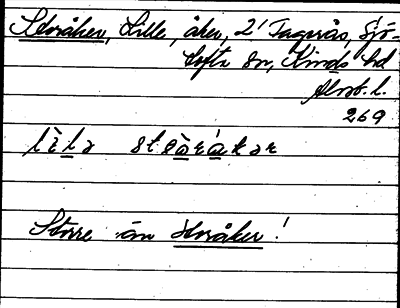 Storåker, Lille, åker, 2' Tageräs, Sjö-
tofta sn, Kinds hd
Älvsb. l.
269
lìlə stòrákər
Större än Storåker!